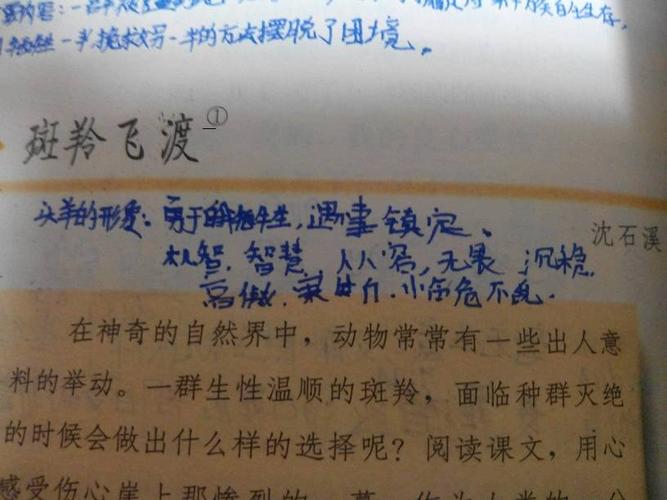 牺牲一半挽救另一半的方式摆脱了困境。
斑羚飞渡①
头羊的形象：勇于自我牺牲，遇事镇定、
沈石溪
机智，智慧，从容，无畏 沉稳
高傲，果断，临危不乱．
在神奇的自然界中，动物常常有一些出人意
料的举动。一群生性温顺的斑羚，面临种群灭绝
的时候会做出什么样的选择呢？阅读课文，用心
感受伤心崖上那惨烈的一幕